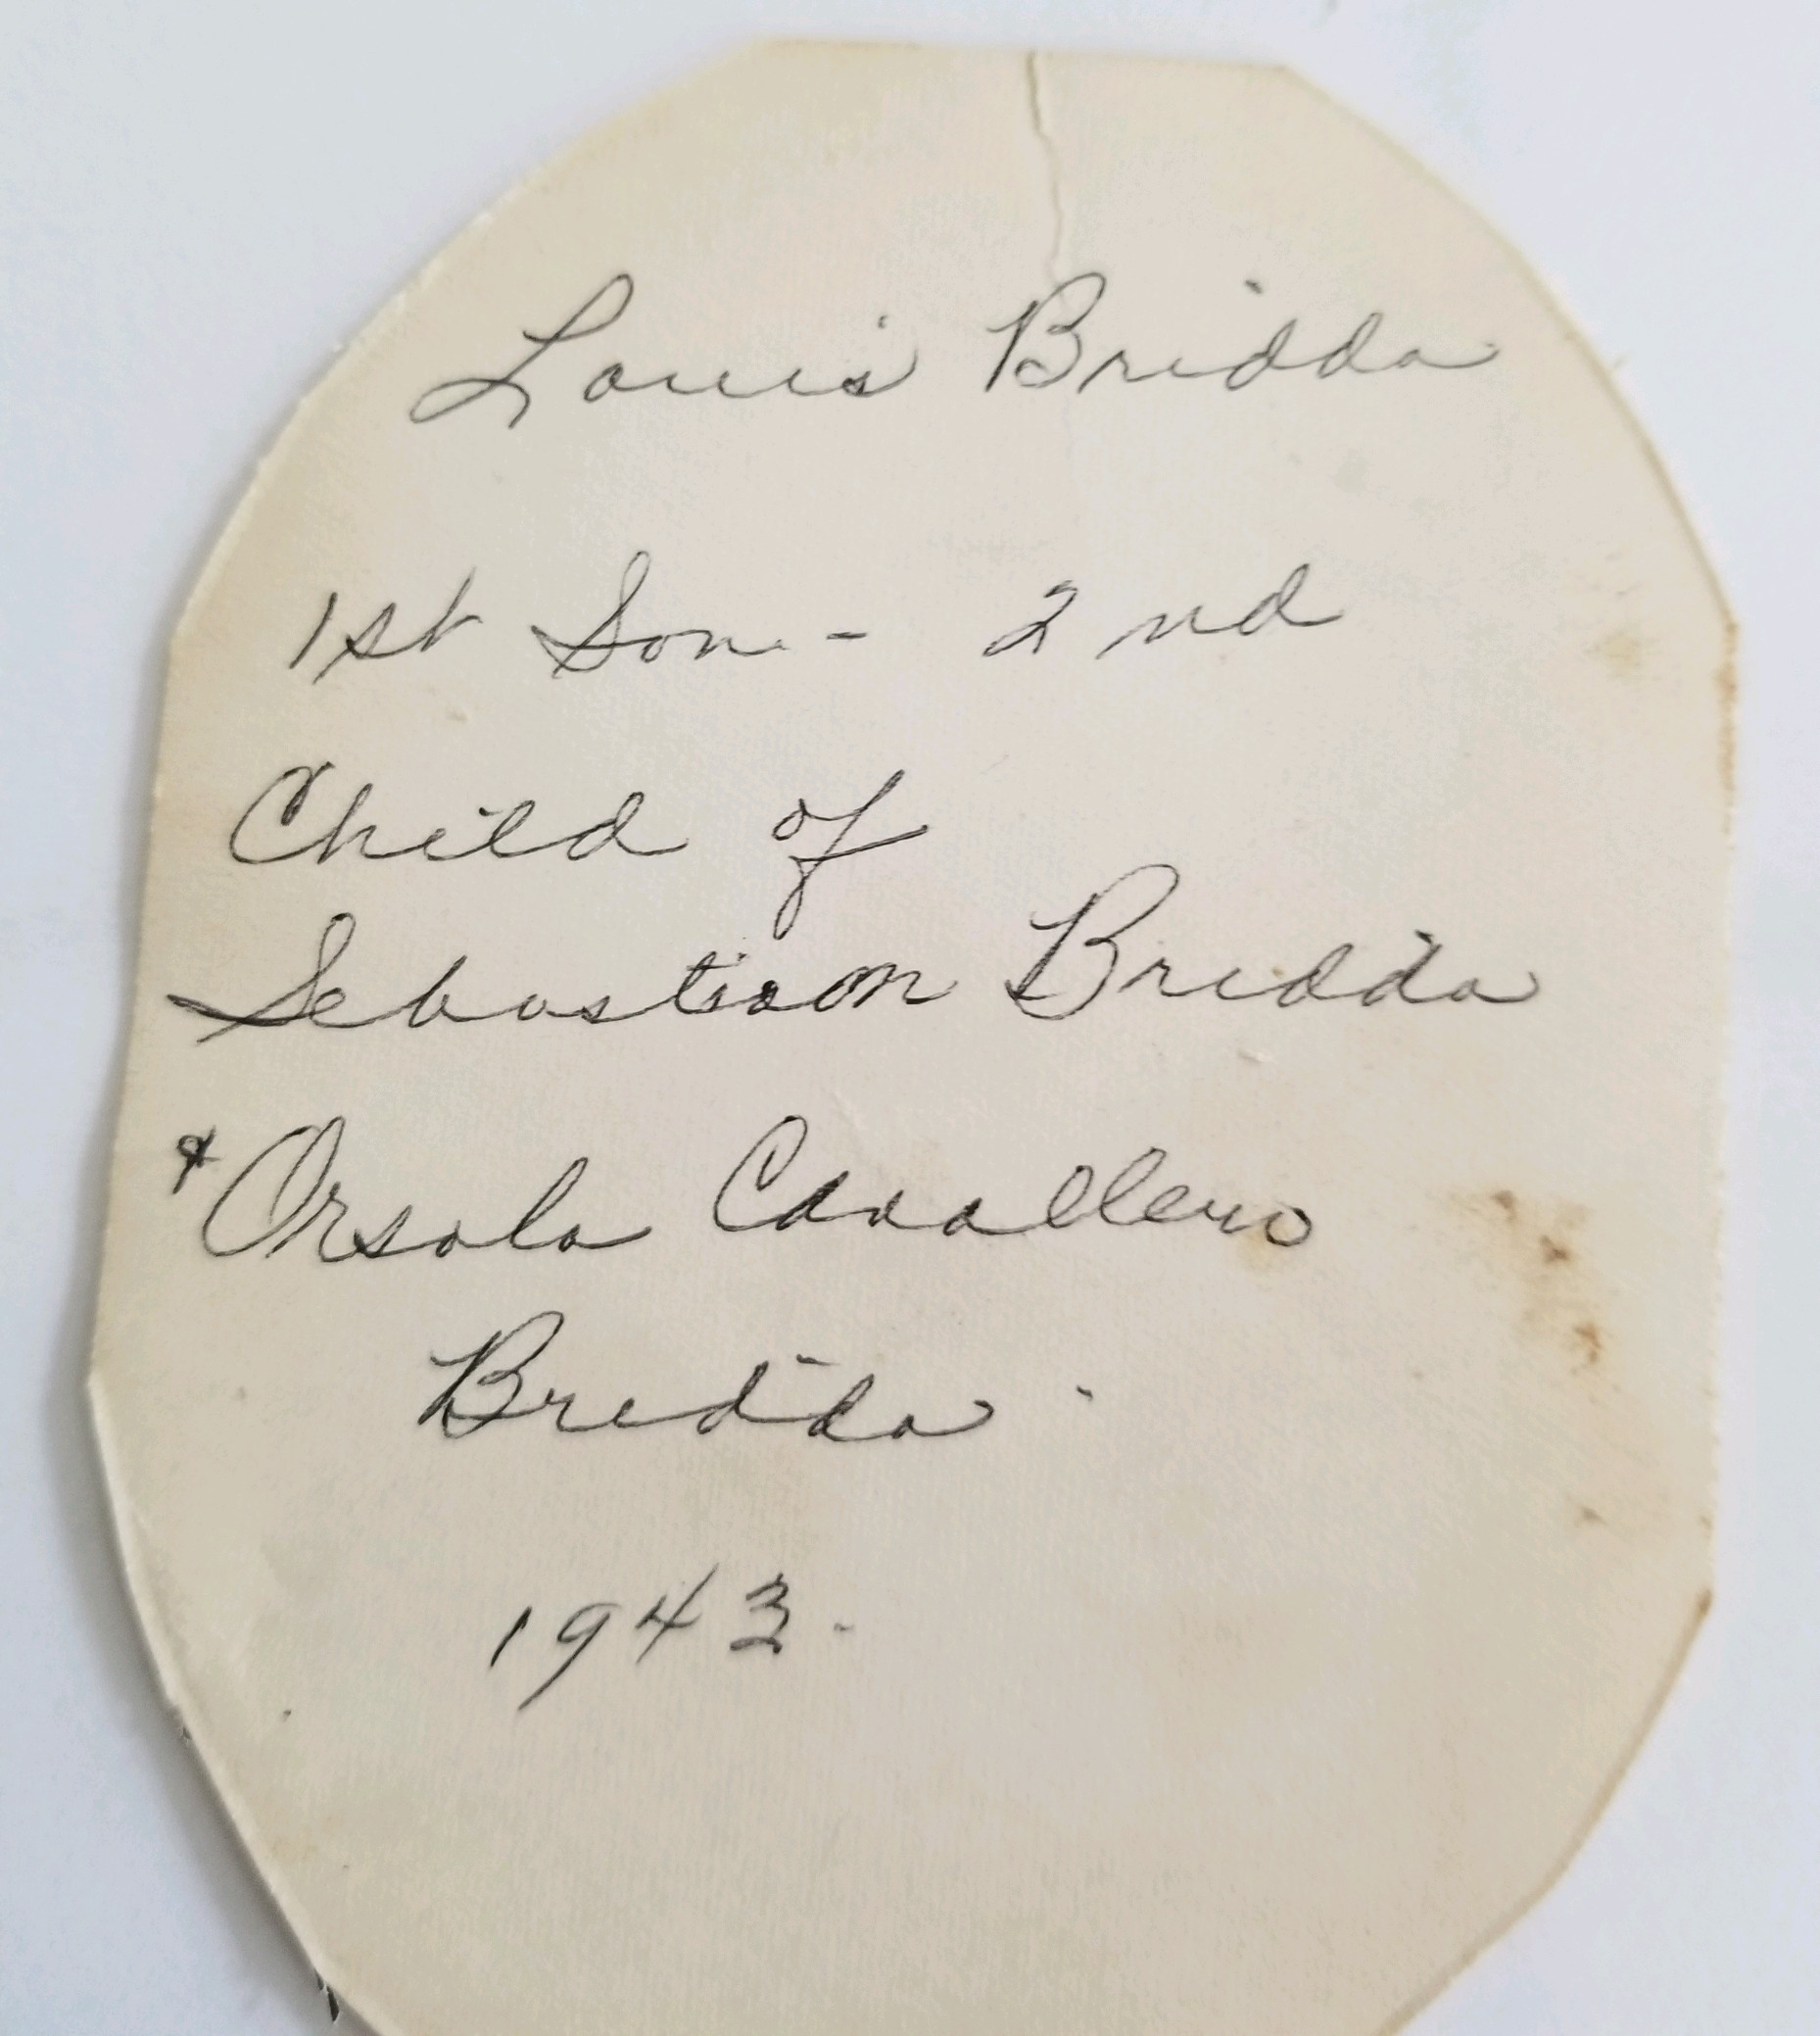 Louis Bridda
1st Son - 2nd
Child of
Sebastian Bridda
& Orsola Cavallero
Bridda
1943.